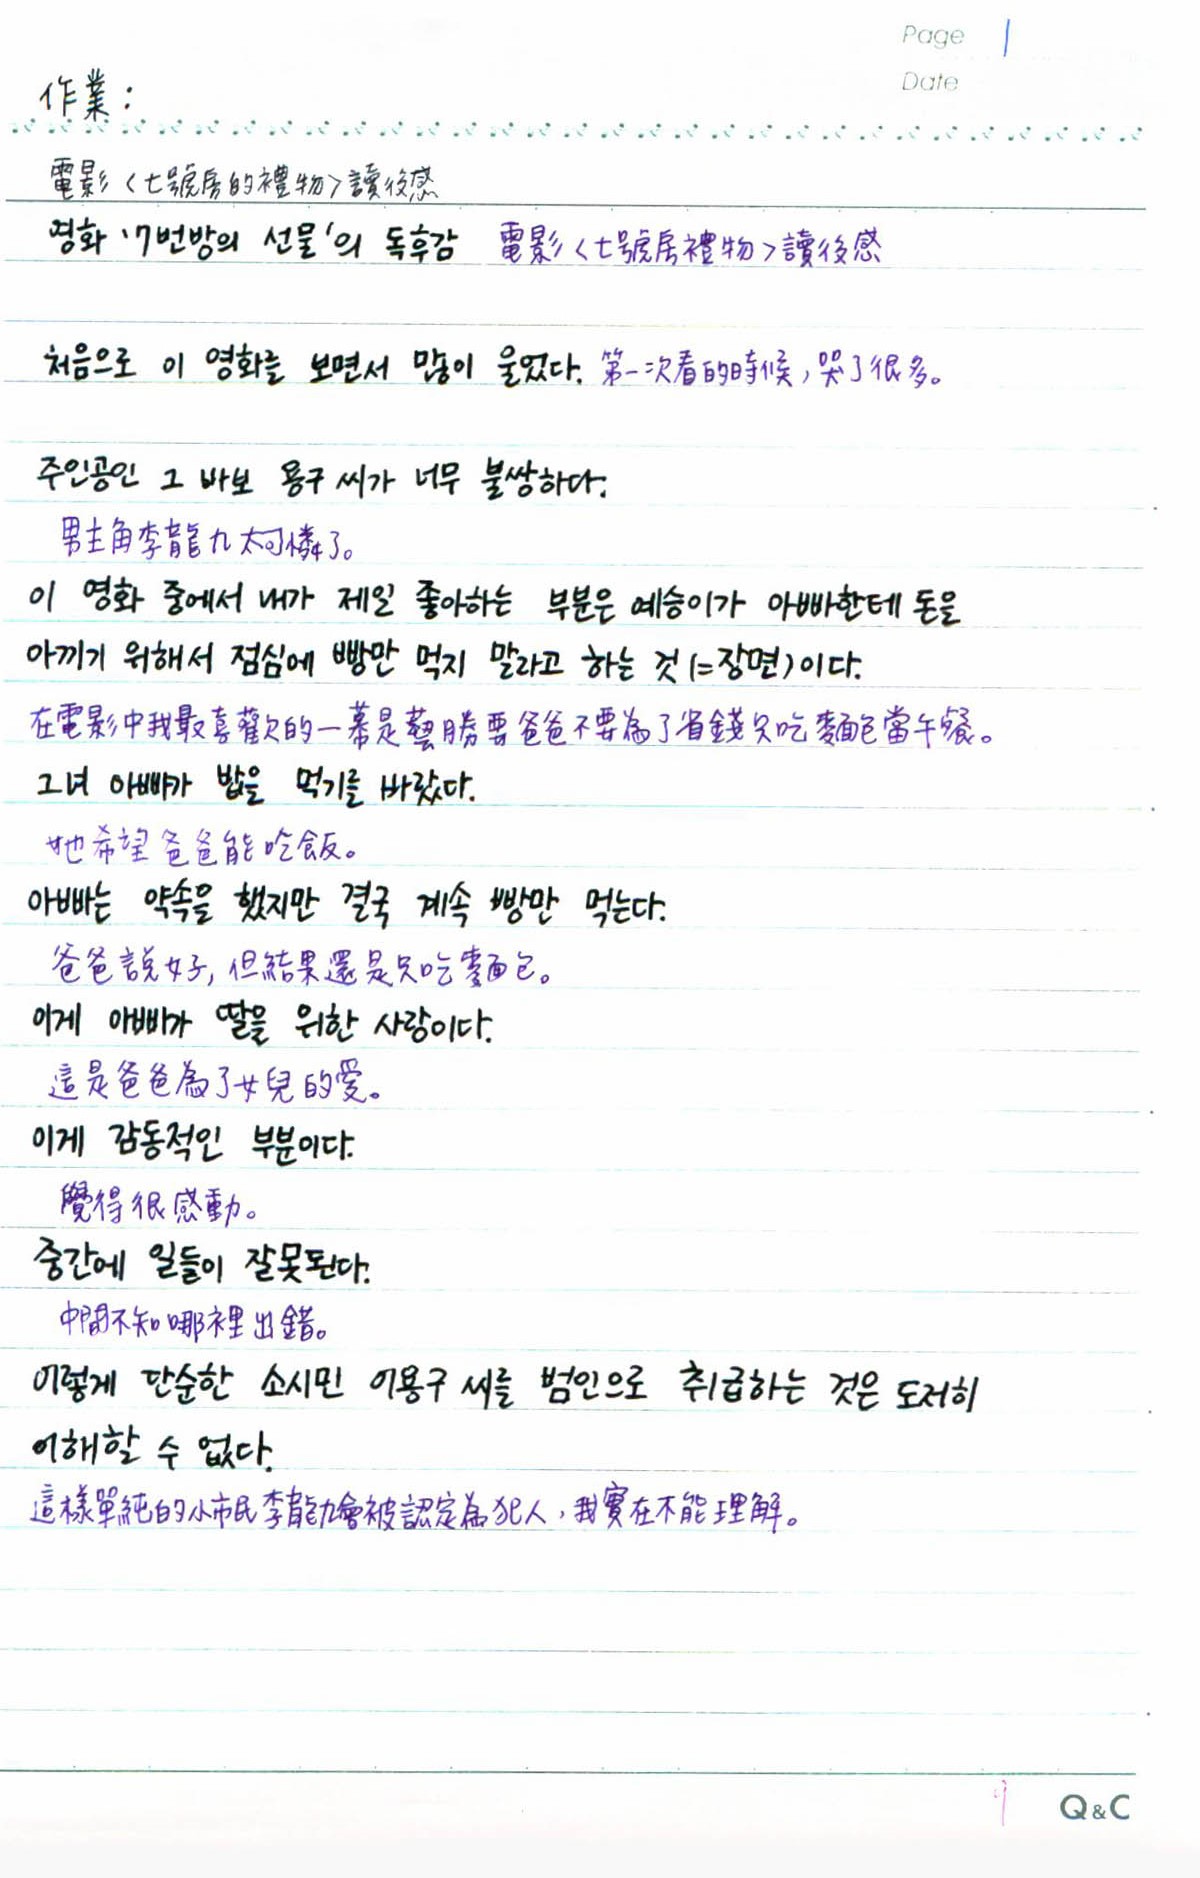 Page 1
Date
作業:
電影〈七號房的禮物〉讀後感
영화 '7번방의 선물'의 독후감 電影〈七號房禮物〉讀後感
처음으로 이 영화를 보면서 많이 울었다. 第一次看的時候,哭了很多。
주인공인 그 바보 용구 씨가 너무 불쌍하다.
男主角李龍九太可憐了。
이 영화 중에서 내가 제일 좋아하는 부분은 예승이가 아빠한테 돈을
아끼기 위해서 점심에 빵만 먹지 말라고 하는 것(=장면)이다.
在電影中我最喜歡的一幕是藝勝要爸爸不要為了省錢只吃麵包當午餐。
그녀 아빠가 밥을 먹기를 바랐다.
她希望爸爸能吃飯。
아빠는 약속을 했지만 결국 계속 빵만 먹는다.
爸爸說好,但結果還是只吃麵包。
이게 아빠가 딸을 위한 사랑이다.
這是爸爸為了女兒的愛。
이게 감동적인 부분이다.
覺得很感動。
중간에 일들이 잘못된다.
中間不知哪裡出錯。
이렇게 단순한 소시민 이용구 씨를 범인으로 취급하는 것은 도저히
이해할 수 없다.
這樣單純的小市民李龍九會被認定為犯人,我實在不能理解。
Q&C